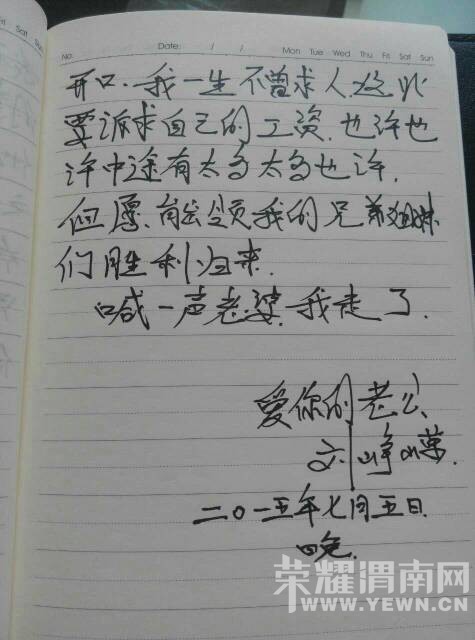 No. Date: / / Mon Tue Wed Thu Fri Sat Sun
开口.我一生不曾求人.这次
要派求自己的工资.也许也
许中途有太多太多也许.
但愿.能领我的兄弟姐妹
们胜利归来.
喊一声老婆.我走了.
爱你的老公
刘峥嵘.
二0一五年七月五日.
晚.
荣耀渭南网
WWW.YEWN.CN